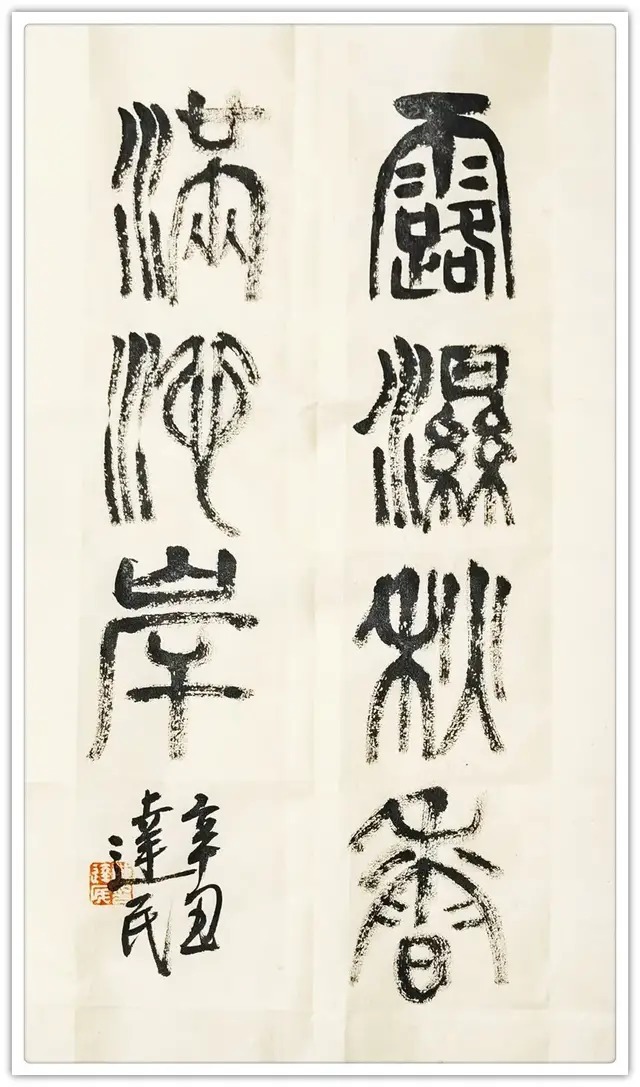 露濕秋香
滿池岸
辛丑
達民